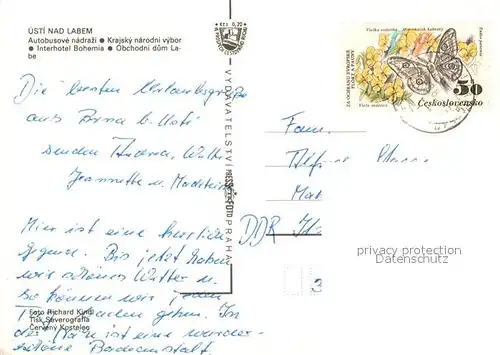 ÚSTÍ NAD LABEM
Autobusové nádraží ● Krajský národní výbor
● Interhotel Bohemia ● Obchodní dům La-
be
Die besten Urlaubsgrüße
aus Brna b. Usti
senden Andrea, Walter
Jeannette u.
Hier ist eine herrliche
Gegend. Bis jetzt haben
wir schönes Wetter u.
so können wir jeden
Tag baden gehen. In
der Nähe ist eine wunder-
schöne Badeanstalt.
Foto Richard Kindl
Tisk Severografia
Červený Kostelec
Kčs 0,20
VYDAVATELSTVÍ PRESSFOTO PRAHA
ZA OCHRANU EVROPSKÉ
FLÓRY A FAUNY
50
Československo
Fam.
DDR
privacy protection
Datenschutz
3